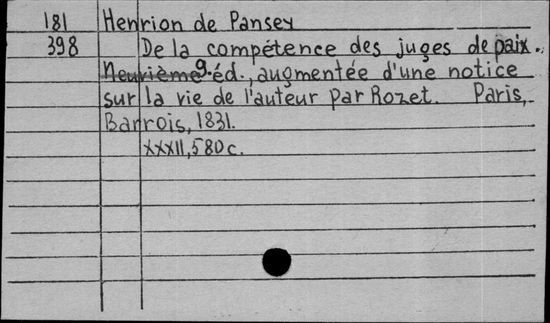 181 Henrion de Pansey
398 De la compétence des juges de paix.
Neuvième 9. éd., augmentée d'une notice
sur la vie de l'auteur par Rozet. Paris,
Barrois, 1831.
XXXII, 580 c.